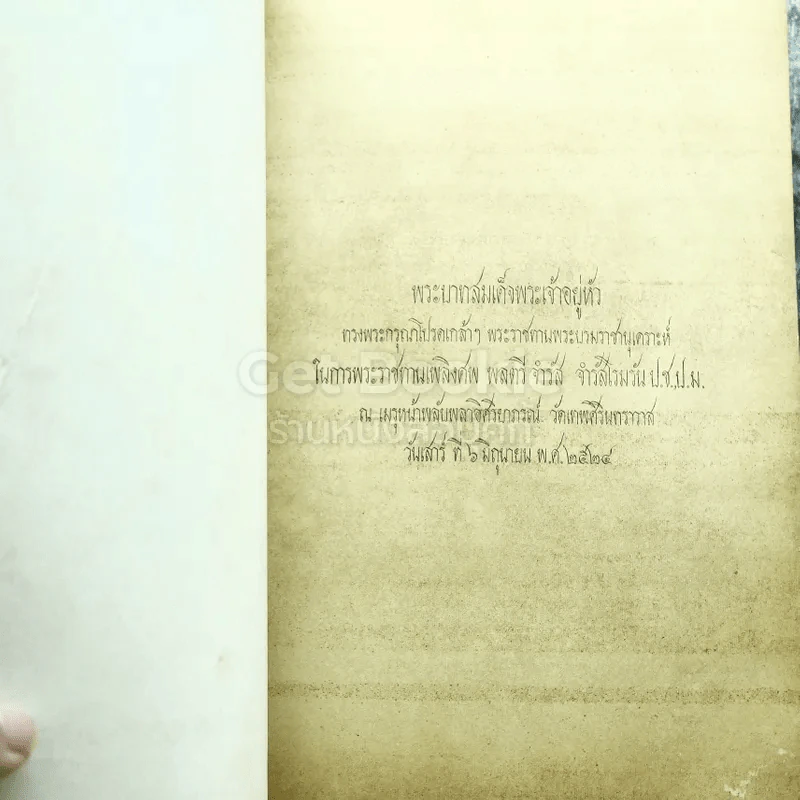 พระบาทสมเด็จพระเจ้าอยู่หัว
ทรงพระกรุณาโปรดเกล้าฯ พระราชทานพระบรมราชานุเคราะห์
ในการพระราชทานเพลิงศพ พลตรี จำรัส จำรัสโรมรัน ป.ช.,ป.ม.
ณ เมรุหน้าพลับพลาอิศริยาภรณ์ วัดเทพศิรินทราวาส
วันเสาร์ ที่ ๖ มิถุนายน พ.ศ.๒๕๒๔
Get Book